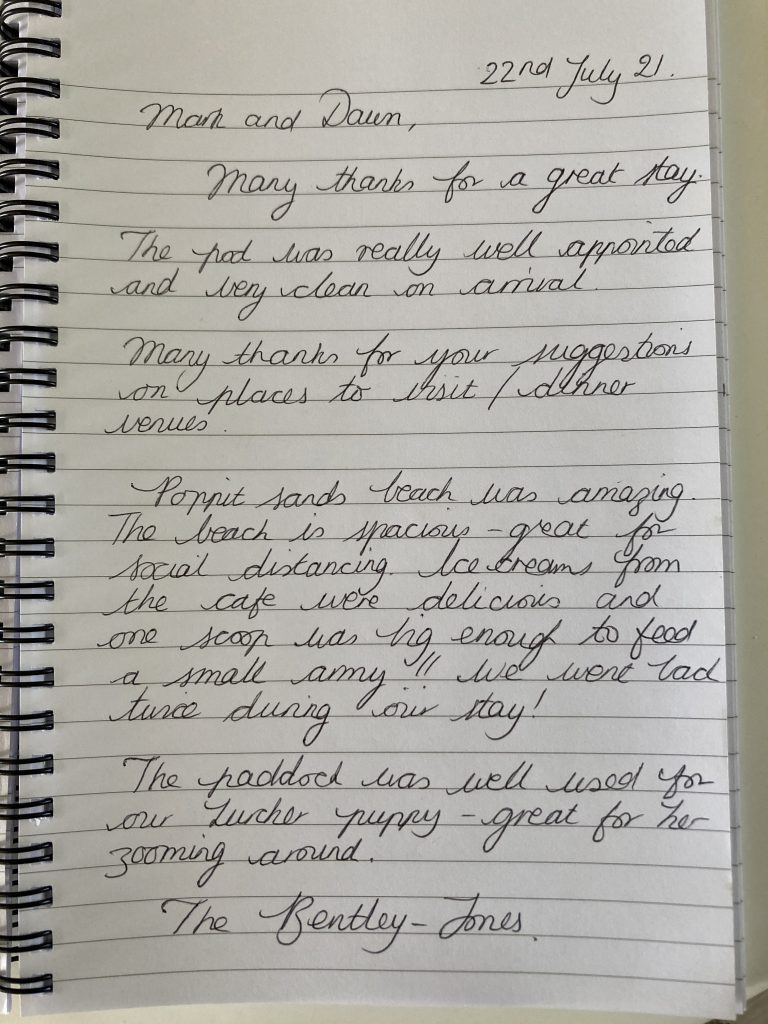 22nd July 21.
Mark and Dawn,
Many thanks for a great stay.
The pod was really well appointed
and very clean on arrival.
Many thanks for your suggestions
on places to visit / dinner
venues.
Poppit sands beach was amazing.
The beach is spacious - great for
social distancing. Ice creams from
the cafe were delicious and
one scoop was big enough to feed
a small army !! We went back
twice during our stay!
The paddock was well used for
our Lurcher puppy - great for her
zooming around.
The Bentley - Jones.